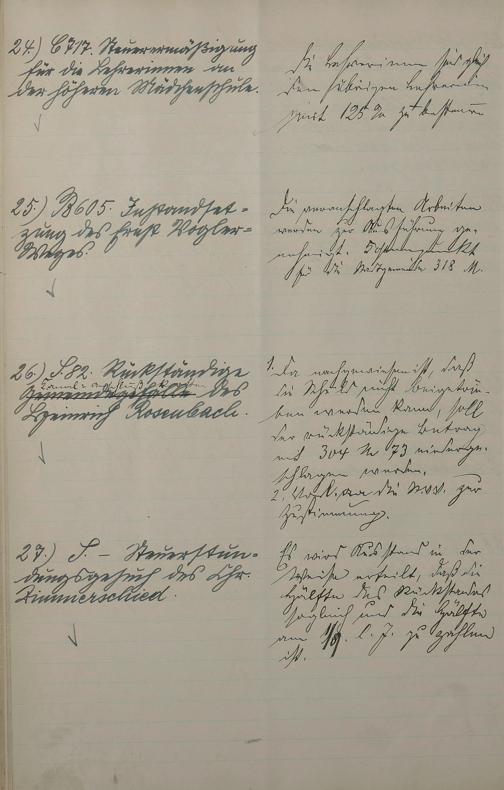 24.) C 717. Steuerermäßigung
für die Lehrerinnen an
der höheren Mädchenschule.
Die Lehrerinnen sind gleich
den übrigen Lehrern
mit 125 % zu besteuern
25.) B 605. Instandset-
zung des Ernst Vogler-
Weges.
Die veranschlagten Arbeiten
werden zur Ausführung ge-
nehmigt.
für die Stadtgemeinde 318 M.
26.) S 82. Rückständige
Kanalanschlußkosten
Gemeindegefälle des
Heinrich Rosenbach.
1. Da nachgewiesen ist, daß
die Schuld nicht beigetrie-
ben werden kann, soll
der rückständige Betrag
mit 304 M 73 niederge-
schlagen werden.
2. die zur
Zustimmung.
27.) S. - Steuerstun-
dungsgesuch des Chr.
Zimmerschied.
Es wird Ausstand in der
Weise erteilt, daß die
Hälfte des Rückstandes
sogleich und die Hälfte
am 1/9. l. J. zu zahlen
ist.